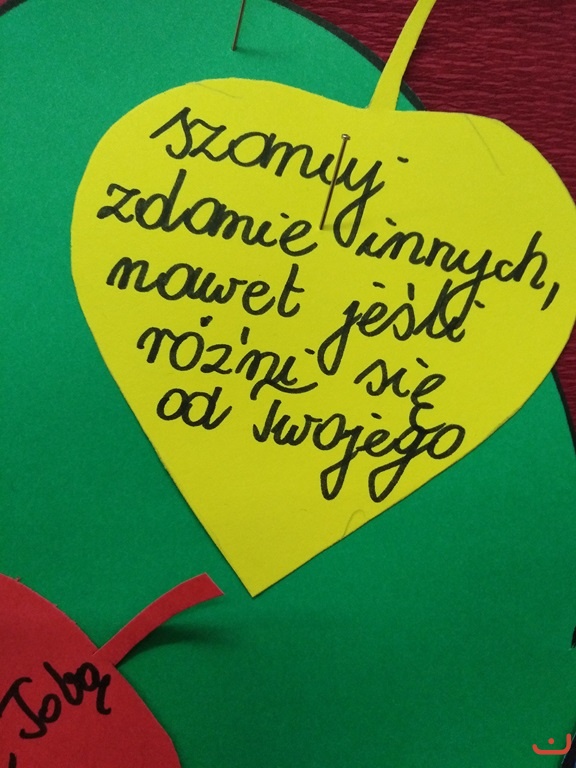 szanuj
zdanie innych,
nawet jeśli
różni się
od Twojego
Tobą